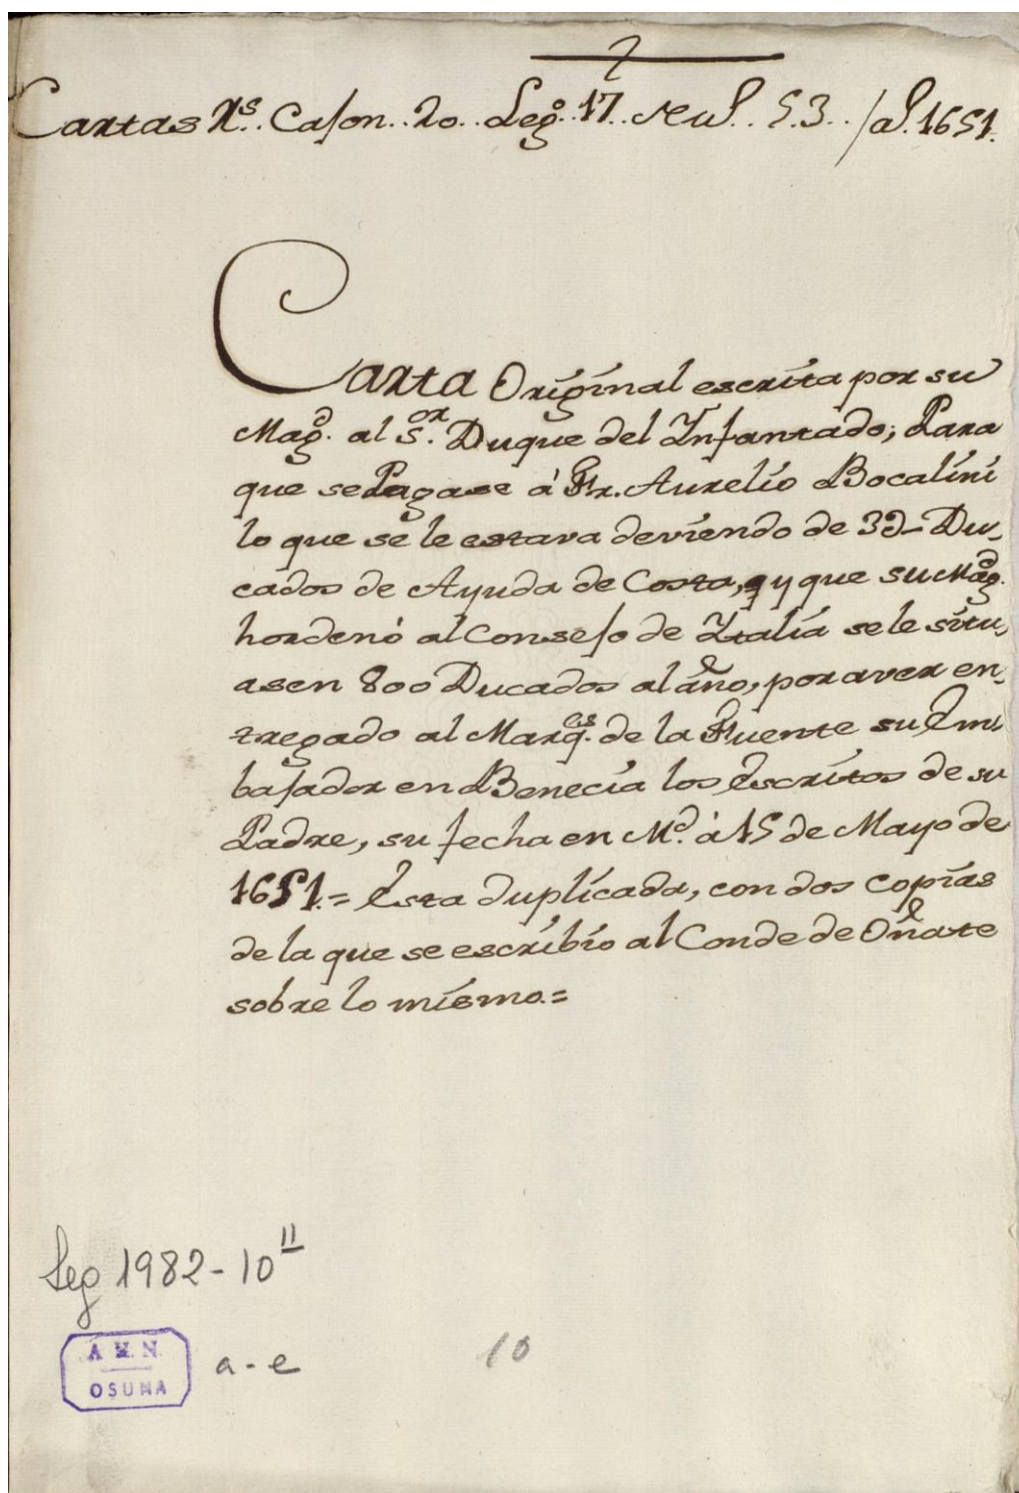 Cartas Rs. Cason.. 20.. Lego. 17.. 5.3.. /a 1651.
Carta Original escrita por su
Magd. al Sor. Duque del Infantado; Para
que se Pagase á Fr. Aurelio Bocalini
lo que se le estava deviendo de 3D_ Du_
cados de Ayuda de Costa, y que su Magd.
hordenó al Consejo de Italia se le situ,
asen 800 Ducados al año, por aver en,
tregado al Marqes. de la Fuente su Em,
bajador en Benecia los Escritos de su
Padre, su fecha en Md. á 15 de Mayo de
1651.= Esta duplicada, con dos copias
de la que se escribio al Conde de Oñate
sobre lo mismo.=
Leg 1982-10 11
A H. N.
OSUNA
a-e
10